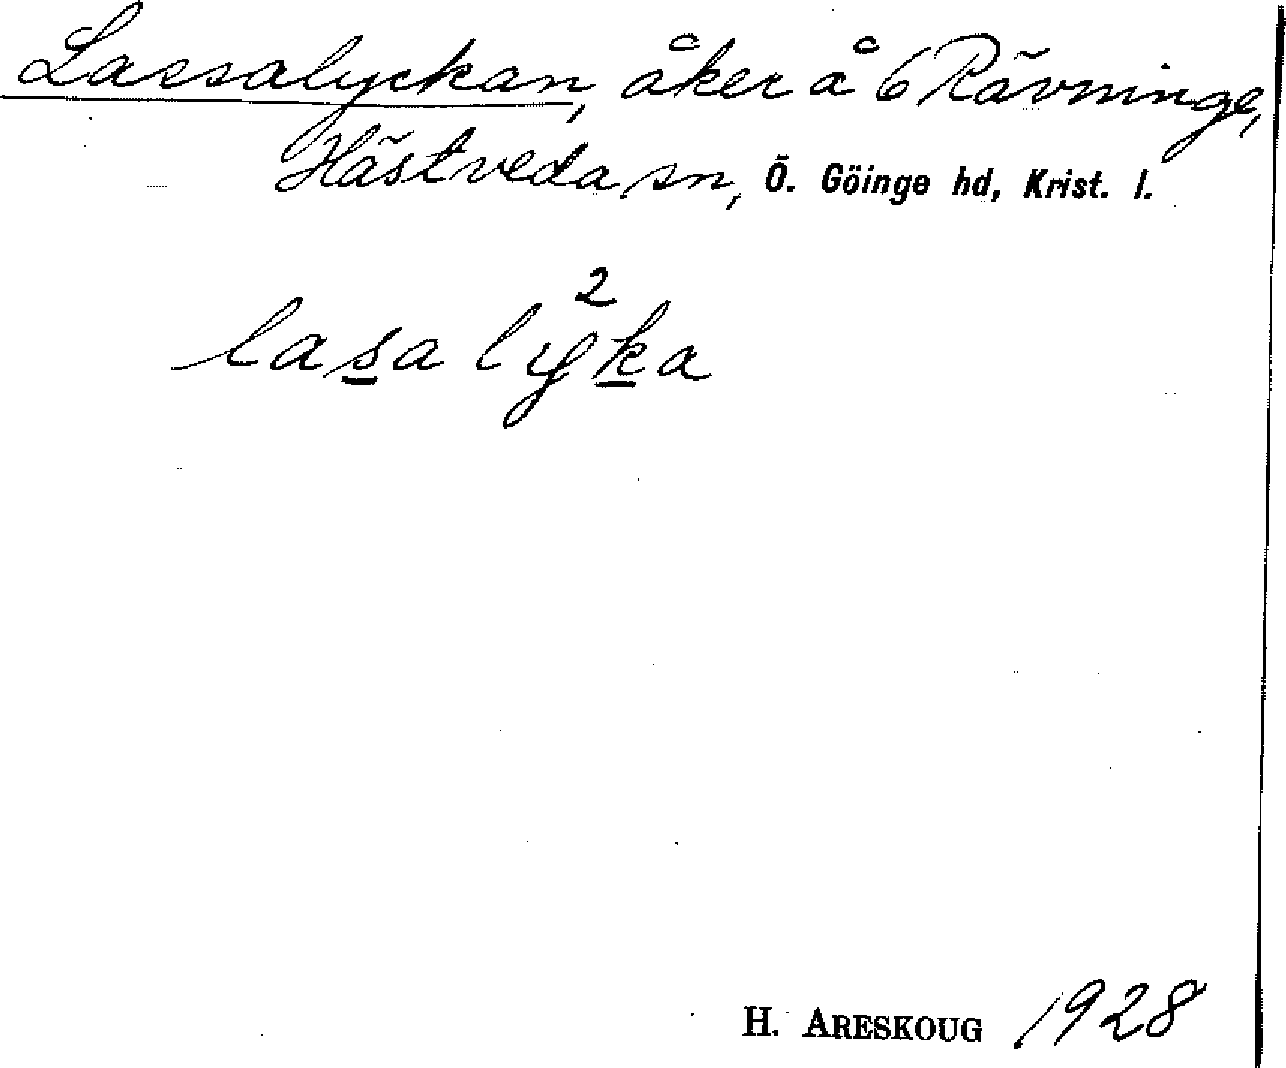 Lassalyckan, åker å 6 Rävninge,
Hästveda sn, Ö. Göinge hd, Krist. l.
lasaly²ka
H. ARESKOUG 1928